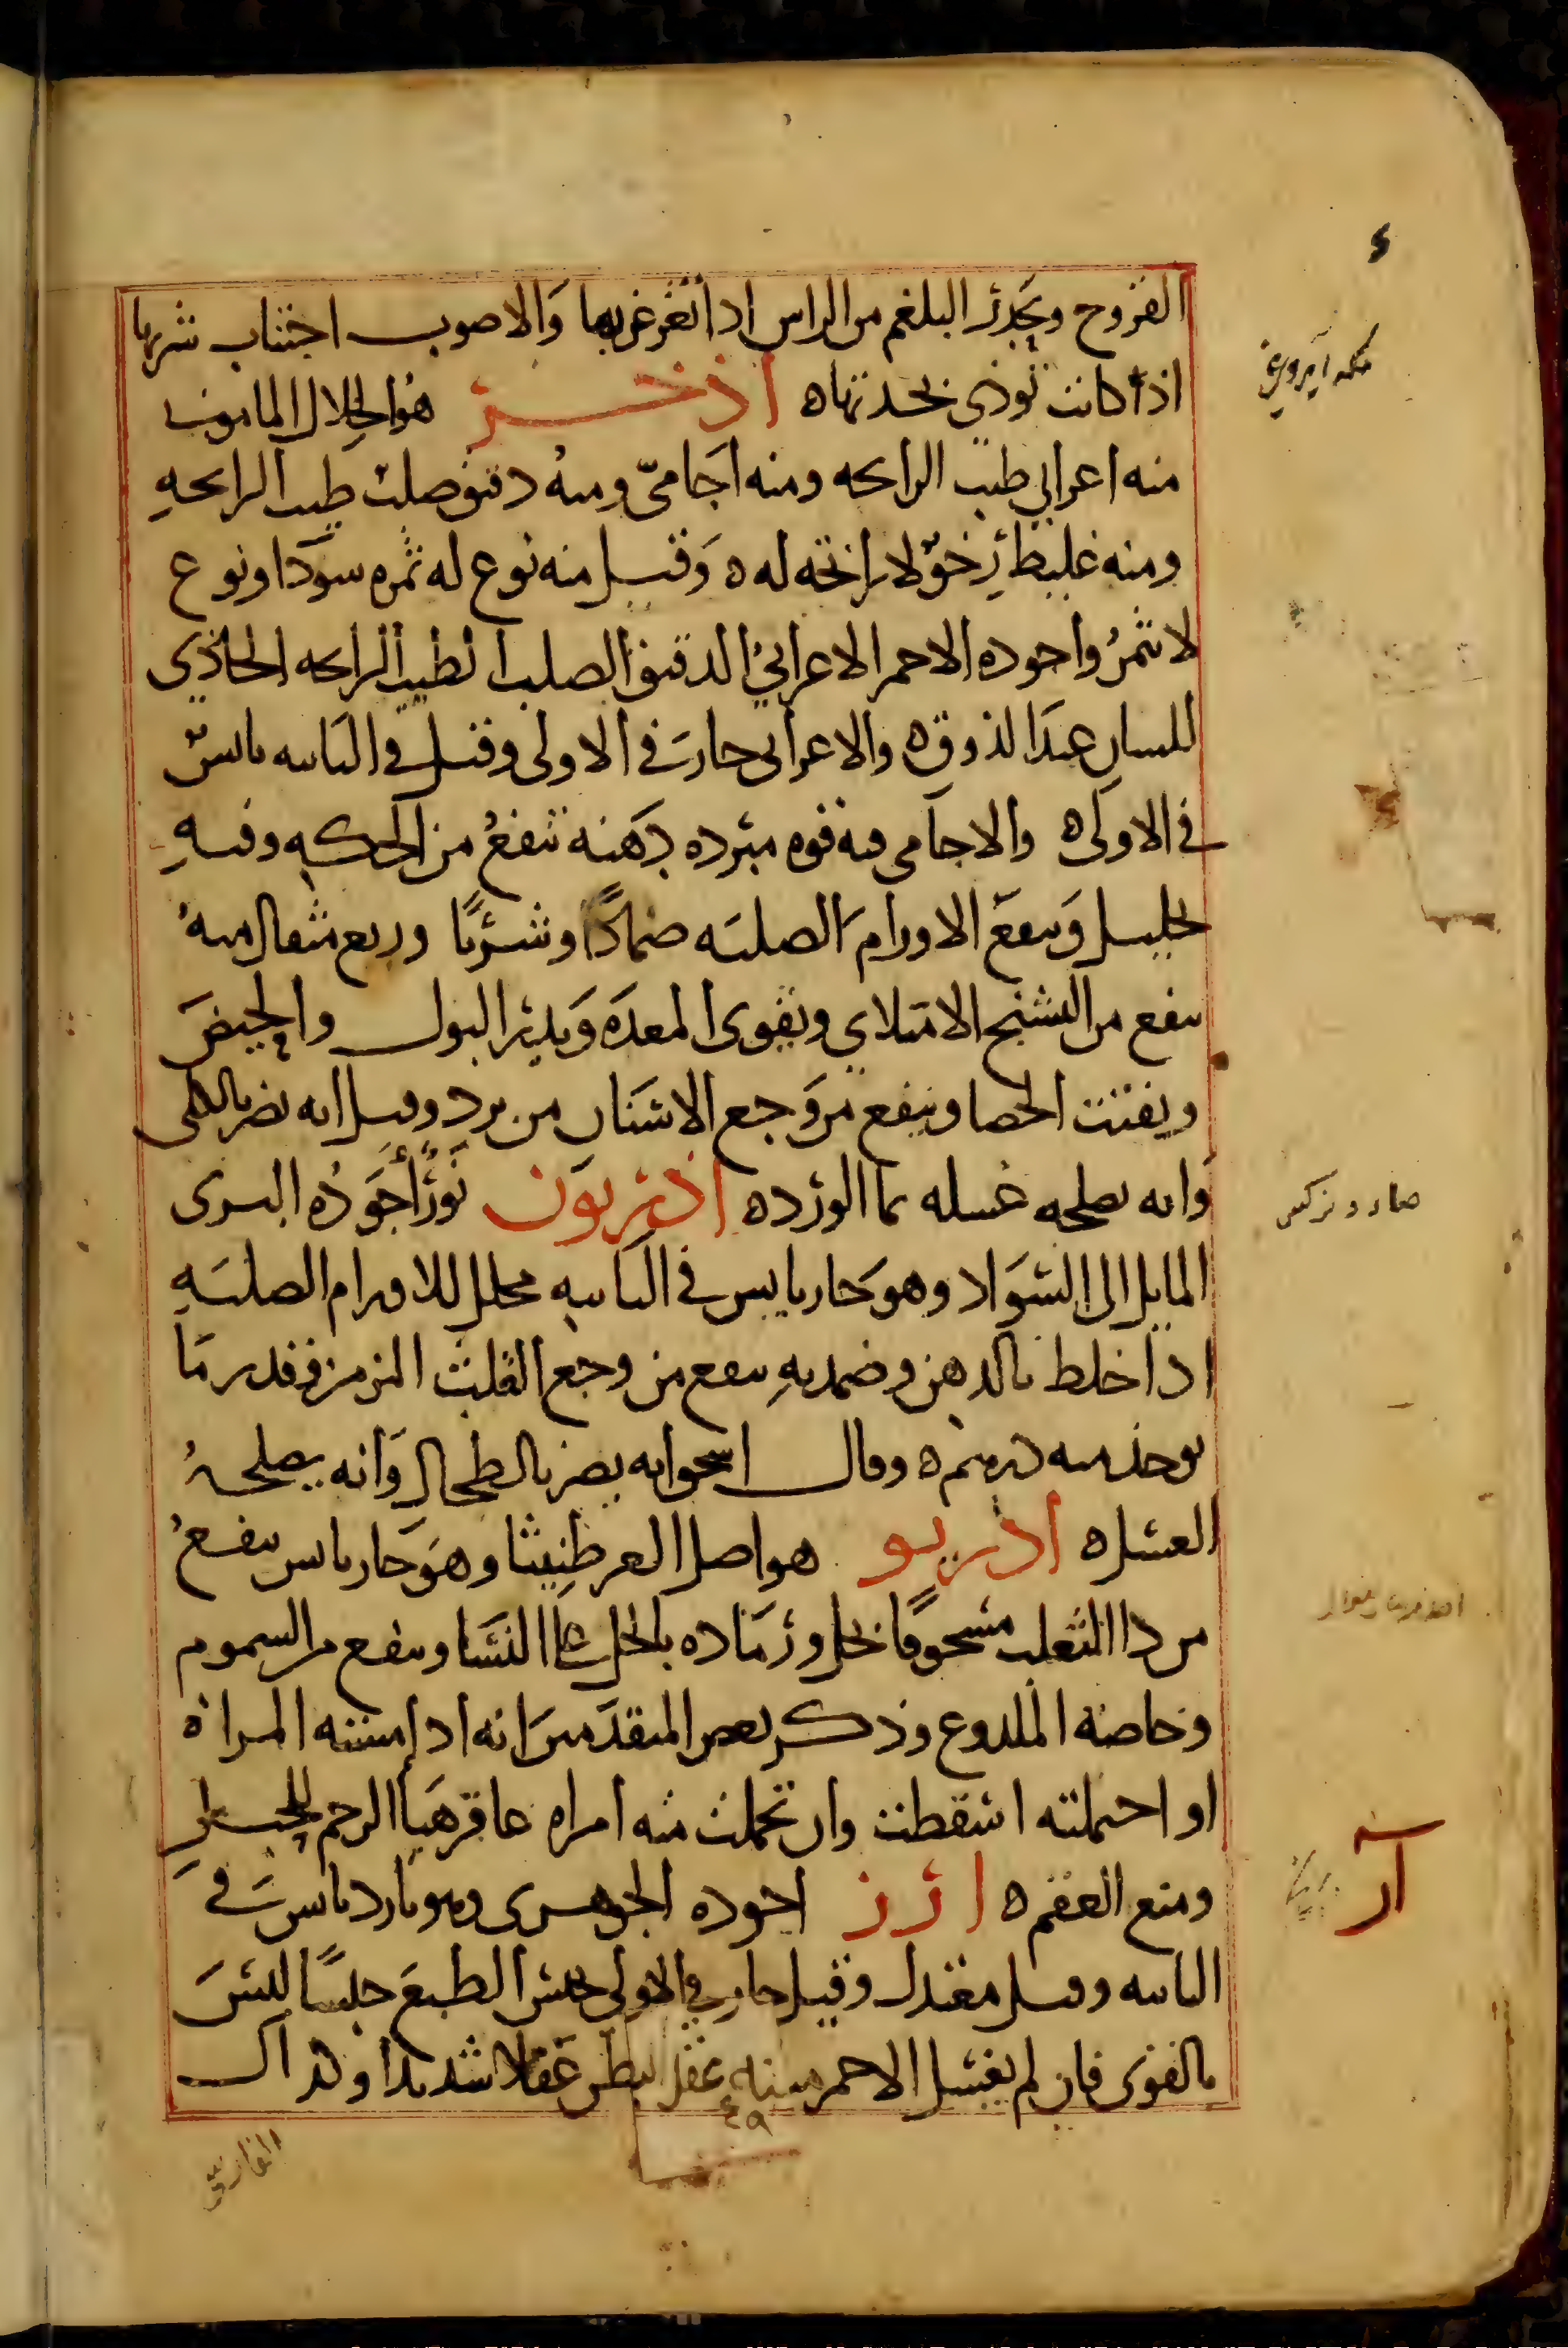 القروح ويحدر البلغم من الراس اذا تغرغر بها والاصوب اجتناب شربها
اذا كانت توذى بحدتها ه اذخر هو الخلال المامونى
منه اعرابي طيب الرايحه ومنه اجامىّ ومنه دقيق صلب طيب الرايحه
ومنه غليظ رخوٌ لا رائحه له ه وقيل منه نوع له ثمره سودا ونوع
لا يثمر واجوده الاحمر الاعرابي الدقيق الصلب الطيب الرايحه الحاذي
للسان عند الذوق ه والاعرابى حار في الاولى وقيل في الثانيه يابس
في الاولى ه والاجامى فيه قوه مبرده دهنه ينفع من الحكه وفيه
تحليل وينفع الاورام الصلبه ضمادًا وشربًا وربع مثقال منه
ينفع من التشنج الامتلاي ويقوى المعده ويدر البول والحيض
ويفتت الحصا وينفع من وجع الاسنان من برد وقيل انه يضر بالكلى
وانه يصلحه غسله بما الورد ه اذريون نورٌ أجوده البرى
المايل الى السواد وهو حار يابس في الثانيه محلل للاورام الصلبه
اذا خلط بالدهن وضمد به ينفع من وجع القلب المزمن وقدر ما
يوخذ منه درهم ه وقال اسحق انه يضر بالطحال وانه يصلحه
العسل ه اذريو هو اصل العرطنيثا وهو حار يابس ينفع
من دا الثعلب مسحوقًا بخل ورماده بالخل النسا وينفع من السموم
وخاصه الملدوغ وذكر بعض المتقدمين انه اذا مسته المراة
او احتملته اسقطت وان تحملت منه امراه عاقر هيا الرحم للحبل
ومنع العقم ه ارز اجوده الجوهرى وهو بارد يابس في
الثانيه وقيل معتدل وقيل حار في الاولى يحبس الطبع حبسًا ليس
بالقوى فان لم يغسل الاحمر منه عقل البطن عقلا شديدا وكذلك
٤٩
آر